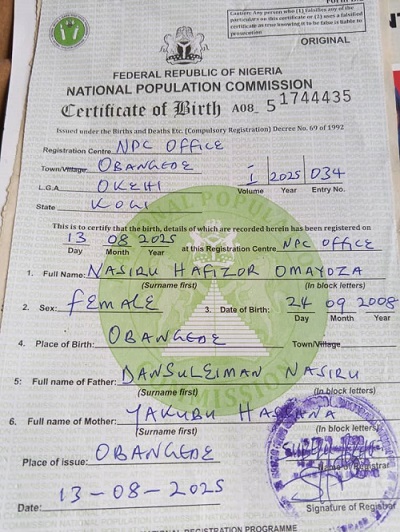 Caution: Any person who (1) falsifies any of the
particulars on this certificate or (2) uses a falsified
certificate as true knowing it to be false is liable to
prosecution
ORIGINAL
FEDERAL REPUBLIC OF NIGERIA
NATIONAL POPULATION COMMISSION
Certificate of Birth A08_ 51744435
Issued under the Births and Deaths Etc. (Compulsory Registration) Decree No. 69 of 1992
Registration Centre NPC OFFICE
Town/Village OBANGEDE I 2025 034
L.G.A OKEHI Volume Year Entry No.
State KOGI
This is to certify that the birth, details of which are recorded herein has been registered on
13 08 2025 at this Registration Centre NPC OFFICE
Day Month Year
1. Full Name: NASIRU HAFIZOR OMAYOZA
(Surname first) (In block letters)
2. Sex: FEMALE 3. Date of Birth: 24 09 2008
Day Month Year
4. Place of Birth: OBANGEDE Town/Village
5: Full name of Father: DANSULEIMAN NASIRU
(Surname first) (In block letters)
6. Full name of Mother: YAKUBU HASSANA
(Surname first) (In block letters)
Place of issue: OBANGEDE
Name of Registrar
Date: 13-08-2025 Signature of Registrar
NATIONAL REGISTRATION PROGRAMME